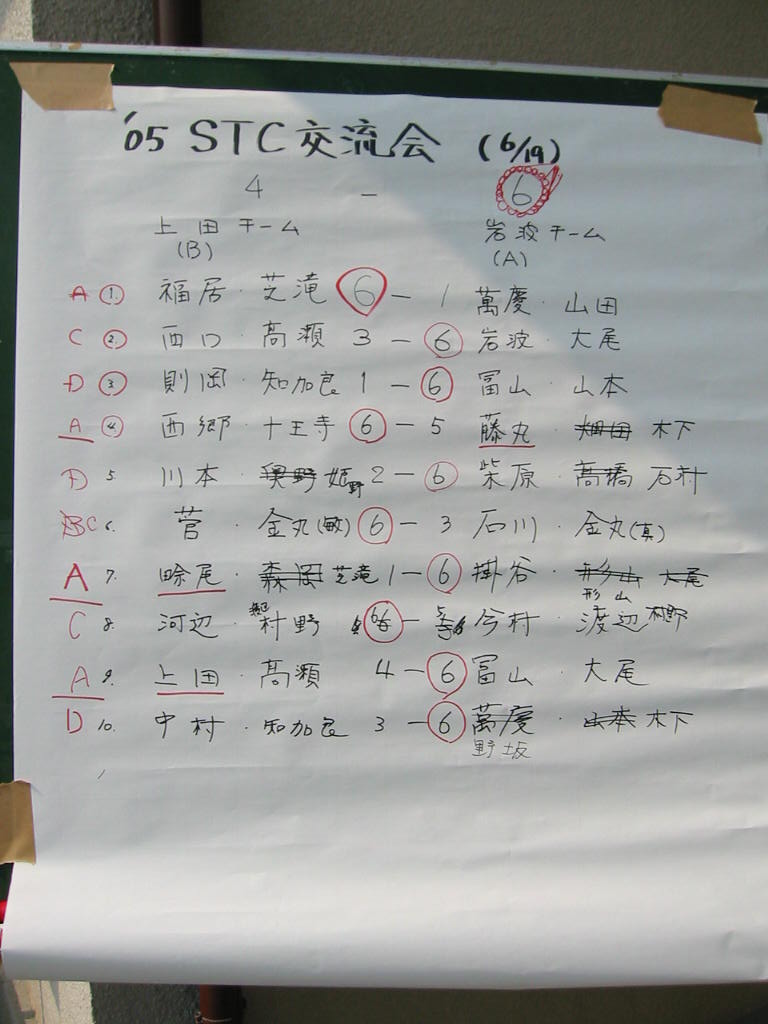 '05 STC 交流会 (6/19)
4 - 6
上田チーム 岩波チーム
(B) (A)
A ① 福居・芝滝 6 - 1 萬慶・山田
C ② 西口・高瀬 3 - 6 岩波・大尾
D ③ 則岡・知加良 1 - 6 冨山・山本
A ④ 西郷・十王寺 6 - 5 藤丸・畑田 木下
D 5. 川本・奥野 姫野 2 - 6 柴原・高橋 石村
B C 6. 菅・金丸(敏) 6 - 3 石川・金丸(真)
A 7. 畭尾・森岡 芝滝 1 - 6 掛谷・形山 大尾
形山
C 8. 河辺・村野 6 - 5 今村・渡辺
A 9. 上田・高瀬 4 - 6 冨山・大尾
D 10. 中村・知加良 3 - 6 萬慶・山本 木下
野坂